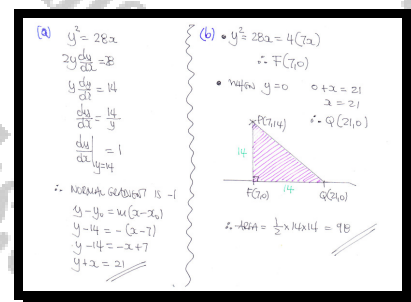 (a) y² = 28x
2y dy/dx = 28
y dy/dx = 14
dy/dx = 14/y
dy/dx | y=14 = 1
∴ NORMAL GRADIENT IS -1
y - y₀ = m(x - x₀)
y - 14 = -(x - 7)
y - 14 = -x + 7
y + x = 21
(b) • y² = 28x = 4(7x)
∴ F(7,0)
• WHEN y = 0 0 + x = 21
x = 21
∴ Q(21,0)
P(7,14)
14
F(7,0) 14 Q(21,0)
∴ AREA = 1/2 × 14 × 14 = 98